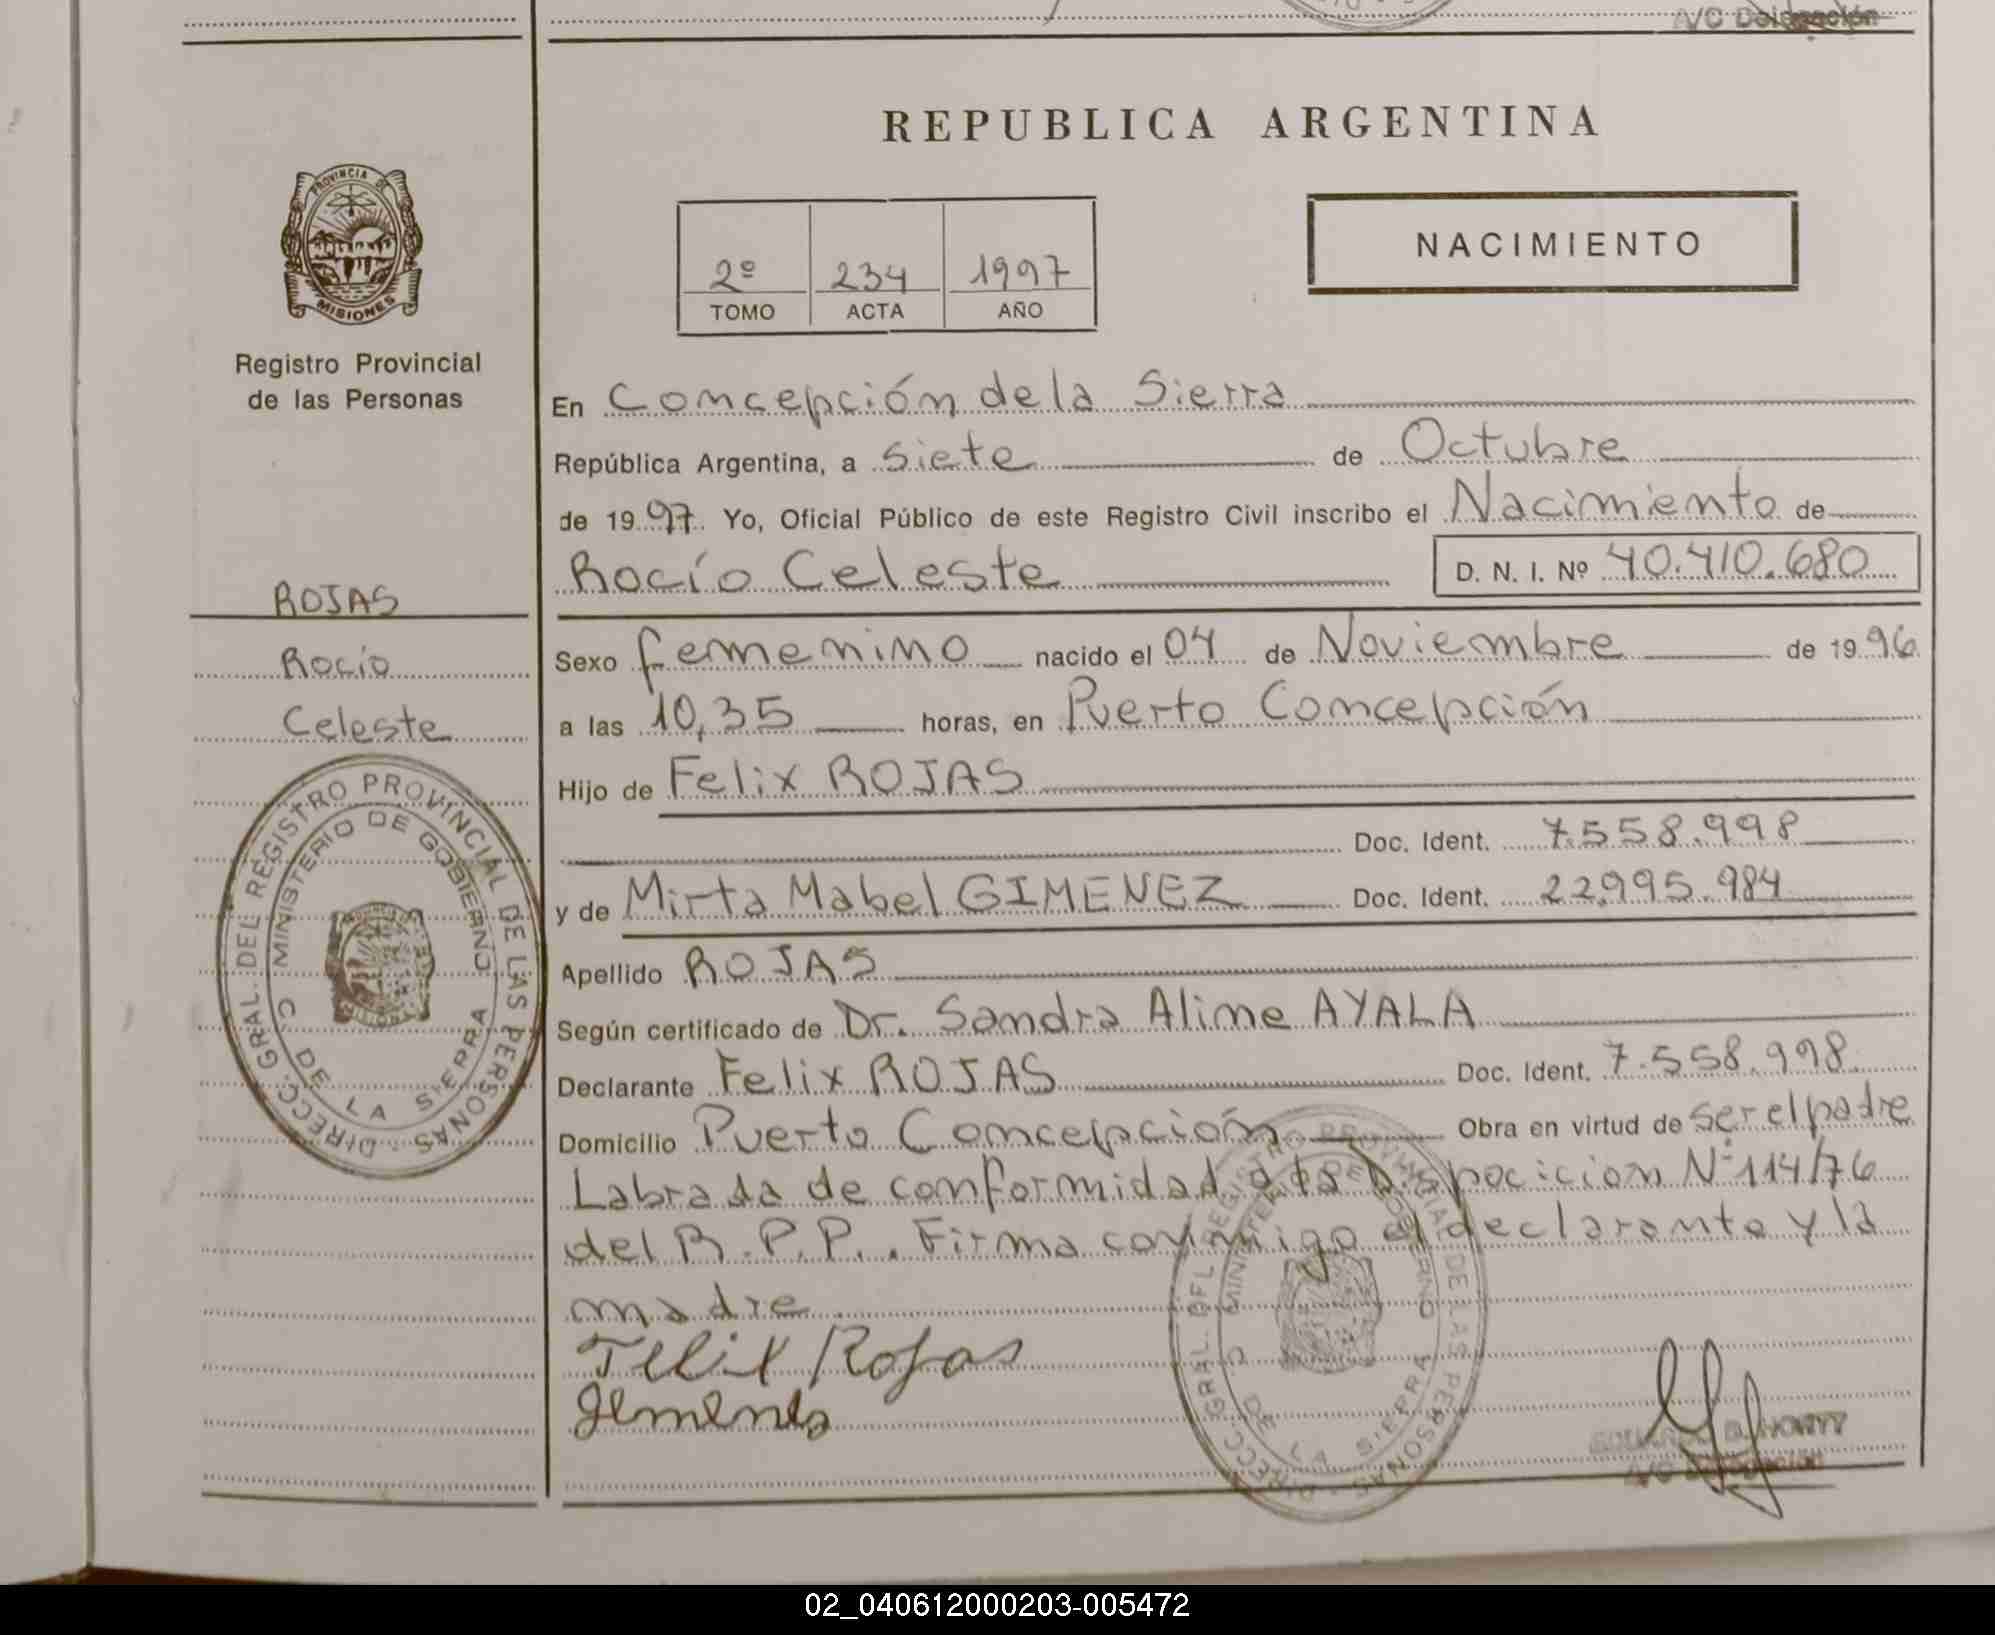 A/C Delegación
REPUBLICA ARGENTINA
PROVINCIA DE
MISIONES
Registro Provincial
de las Personas
2º 234 1997
TOMO ACTA AÑO
NACIMIENTO
En Concepción de la Sierra
República Argentina, a siete de Octubre
de 1997. Yo, Oficial Público de este Registro Civil inscribo el Nacimiento de
Rocío Celeste D. N. I. Nº 40.410.680
ROJAS
Rocío
Celeste
Sexo femenino nacido el 04 de Noviembre de 1996
a las 10,35 horas, en Puerto Concepción
Hijo de Felix ROJAS
Doc. Ident. 7.558.998
y de Mirta Mabel GIMENEZ Doc. Ident. 22.995.984
Apellido ROJAS
Según certificado de Dr. Sandra Aline AYALA
Declarante Felix ROJAS Doc. Ident. 7.558.998
Domicilio Puerto Concepción Obra en virtud de ser el padre
Labrada de conformidad a la Disposicion Nº 114/76
del R.P.P.. Firma conmigo el declarante y la
madre.
Felix Rojas
DIRECC. GRAL. DEL REGISTRO PROVINCIAL DE LAS PERSONAS
MINISTERIO DE GOBIERNO
C. DE LA SIERRA
DIRECC. GRAL. DEL REGISTRO PROVINCIAL DE LAS PERSONAS
MINISTERIO DE GOBIERNO
C. DE LA SIERRA
A/C Delegación
02_040612000203-005472